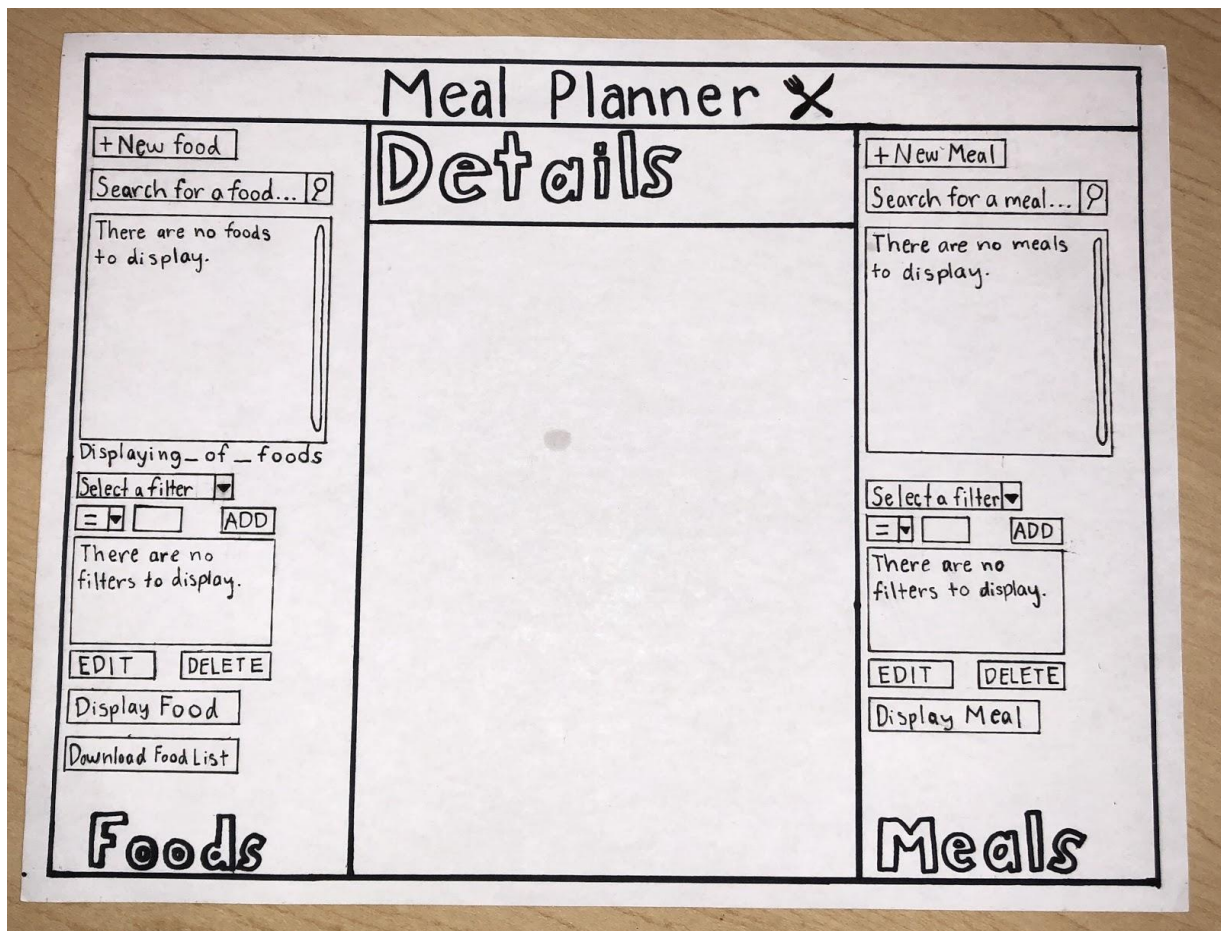 Meal Planner
+ New food
Search for a food...
There are no foods
to display.
Displaying_ of _ foods
Select a filter
=
ADD
There are no
filters to display.
EDIT
DELETE
Display Food
Download Food List
Foods
Details
+ New Meal
Search for a meal...
There are no meals
to display.
Select a filter
=
ADD
There are no
filters to display.
EDIT
DELETE
Display Meal
Meals